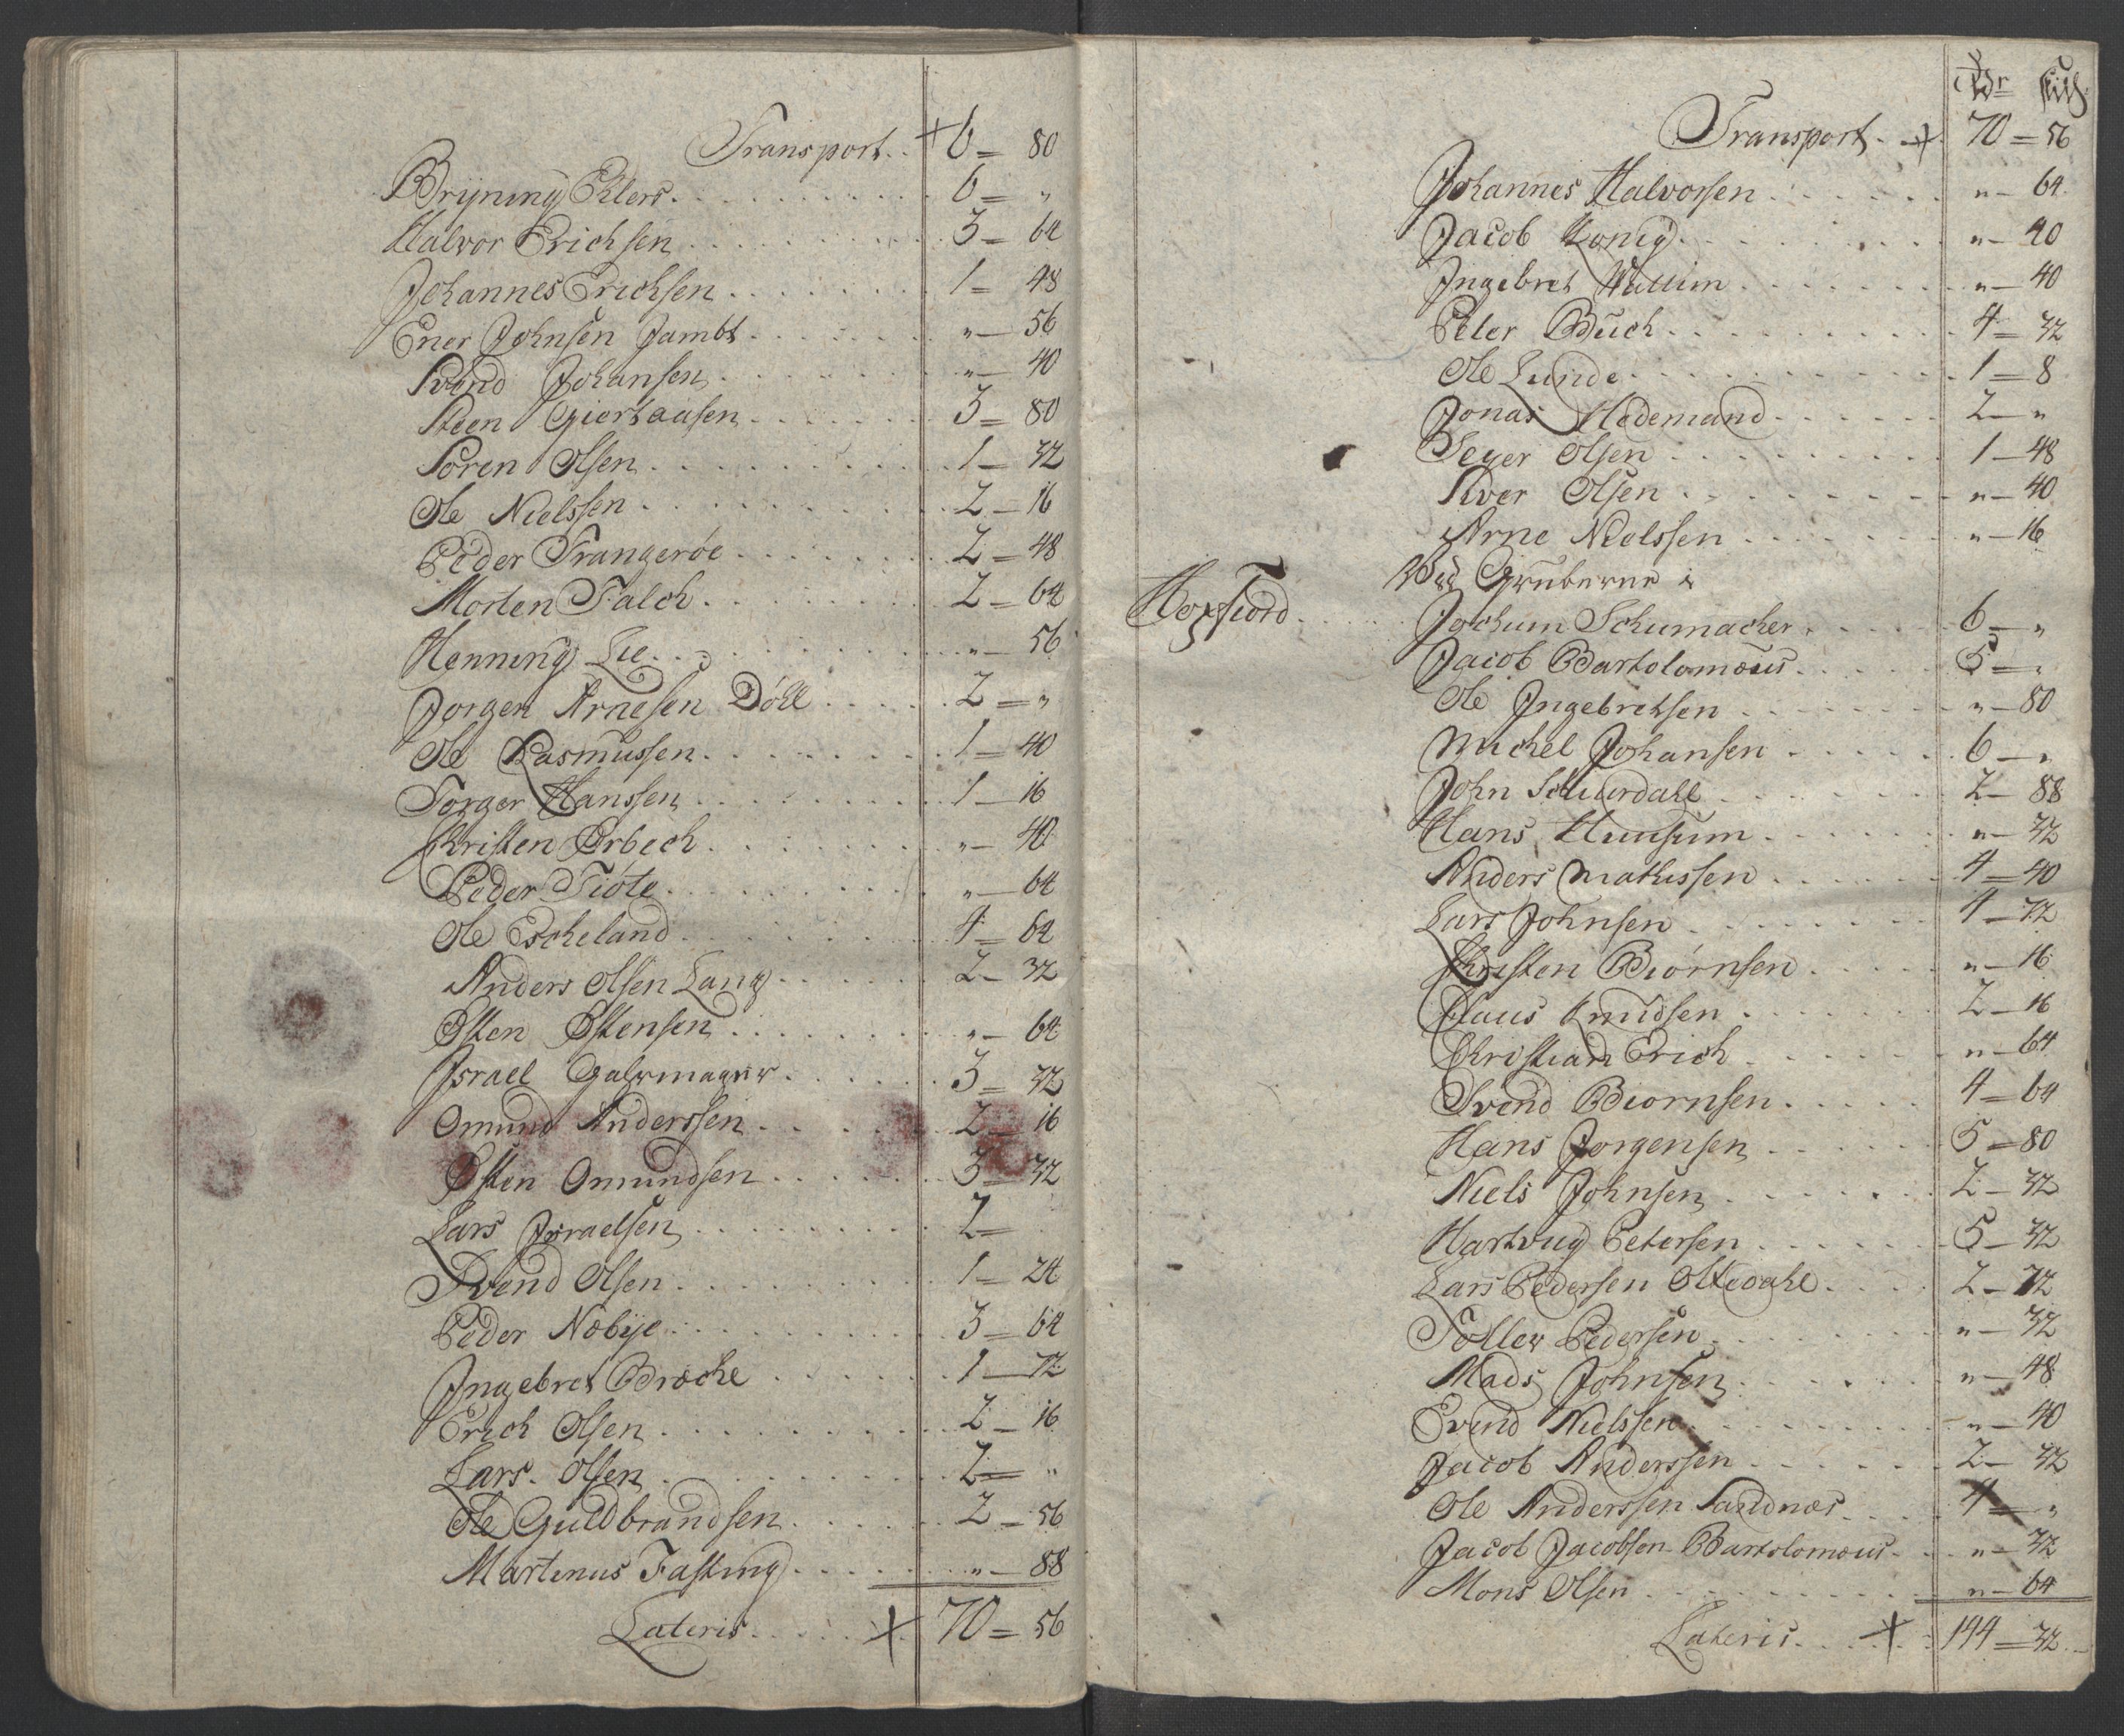 Transport . . + 6 = 80
Brÿning Ehlers . . . 6 = "
Halvor Erichsen . . . 3 = 64
Johannes Erichsen . . . 1 = 48
Ener Johnsen Jambt . . . " — 56
Svend Johansen . . . " — 40
Steen Giertsen . . . 3 = 80
Sören Olsen . . . 1 — 32
Ole Nielssen . . . 2 — 16
Peder Trangeröe . . . 2 = 48
Morten Falch . . . 2 = 64
Henning Lie . . . " — 56
Jorgen Arnesen Döhl . . . 2 = "
Ole Rasmussen . . . 1 = 40
Torger Hanssen . . . 1 — 16
Christen Örbech . . . " — 40
Peder Tiöte . . . " — 64
Ole Escheland . . . 4 = 64
Anders Olsen Lang . . . 2 — 32
Östen Östensen . . . " — 64
Israel Galermager . . . 3 = 32
Omund Anderssen . . . 2 — 16
Östen Omundsen . . . 3 = 32
Lars Israelsen . . . 2 =
Svend Olsen . . . 1 = 24
Peder Næbÿe . . . 3 = 64
Ingebret Bræche . . . 1 — 72
Erich Olsen . . . 2 — 16
Lars Olsen . . . 2 = "
Ole Guldbrandsen . . . 2 — 56
Martinus Fasting . . . " — 88
Lateris . . . + 70 = 56
Rdr skil
Transport . + 70 = 56
Johannes Halvorsen . . . " — 64
Jacob König . . . " — 40
Ingebret Wallim . . . " — 40
Peter Buch . . . 4 = 32
Ole Lunde . . . 1 = 8
Jonas Hedemand . . . 2 — "
Seyer Olsen . . . 1 — 48
Siver Olsen . . . " — 40
Arne Nielssen . . . " — 16
Ved Gruberne i
Hopfiord . . . Jochum Schumacher . . . 6 — "
Jacob Bartolomæus . . . 5 = "
Ole Ingebretsen . . . " — 80
Michel Johansen . . . 6 — "
John Schiærdahl . . . 2 — 88
Hans Huusum . . . " — 32
Anders Mathissen . . . 4 = 40
Lars Johnsen . . . 4 — 72
Christen Biörnsen . . . " — 16
Claus Knudsen . . . 2 — 16
Christian Erich . . . " — 64
Svend Biörnsen . . . 4 = 64
Hans Jorgensen . . . 5 = 80
Niels Johnsen . . . 2 — 32
Hartvig Petersen . . . 5 — 32
Lars Pedersen Oltedahl . . . 2 — 72
Tollev Pedersen . . . " — 32
Mads Johnsen . . . " — 48
Evind Nielssen . . . " — 40
Jacob Anderssen . . . 2 — 32
Ole Anderssen Sandnæs . . . 4 = "
Jacob Jacobsen Bartolomæus . . " — 32
Mons Olsen . . . " — 64
Lateris . . + 144 = 32